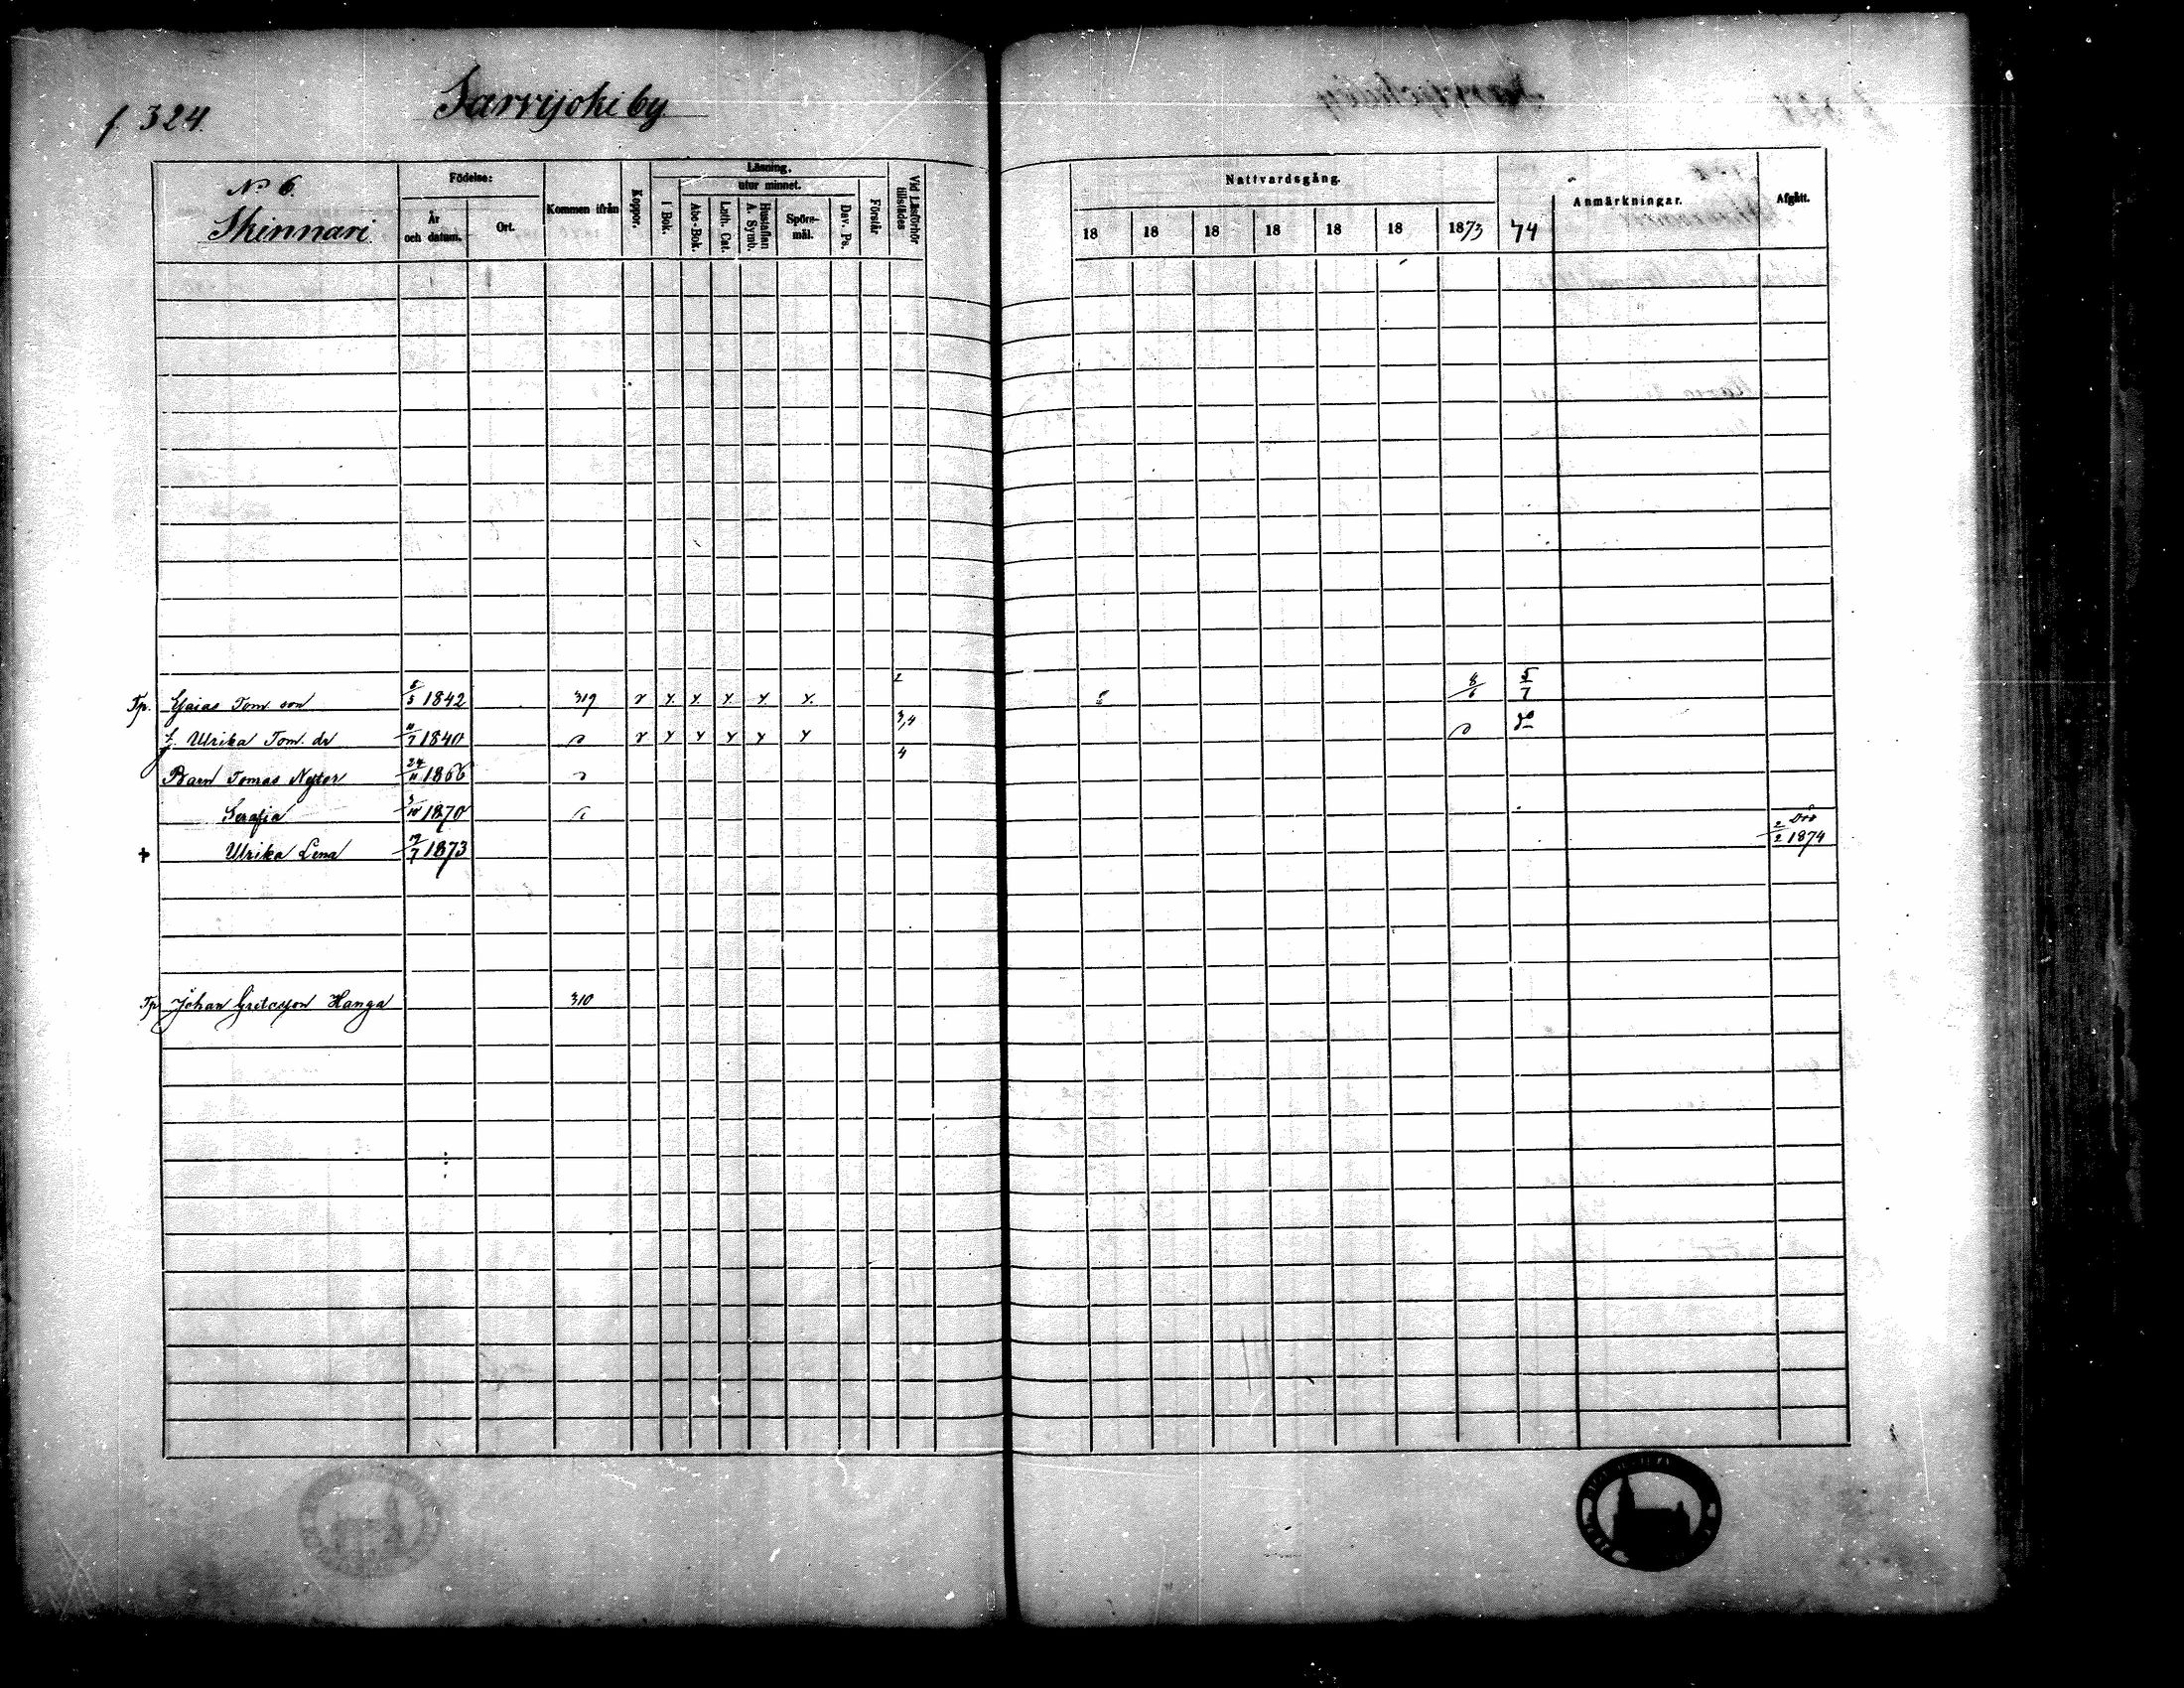 f. 324.
Jarvijoki by
No 6.
Skinnari
Födelse:
År och datum.
Ort.
Kommen ifrån
Koppor.
Läsning,
utur minnet.
I Bok.
Abc-Bok.
Luth. Cat.
Hustaflan A. Symb.
Spörs-mål.
Dav. Ps.
Förstår
Vid Läsförhör tillstädes
Nattvardsgång.
18 18 18 18 18 18 1873 74
Anmärkningar.
Afgått.
Tp. Esaias Tom. son 5/5 1842 319 v y. y. y. y. y. 2 8/6 5/7
h. Ulrika Tom. dr 1840 v y y y y y 3,4 do
4
Barn Tomas Nestor 24/11 1866
Serafia 3/10 1870
+ Ulrika Lena 19/7 1873 Död 2/2 1874
Tp Johan Hanga 310